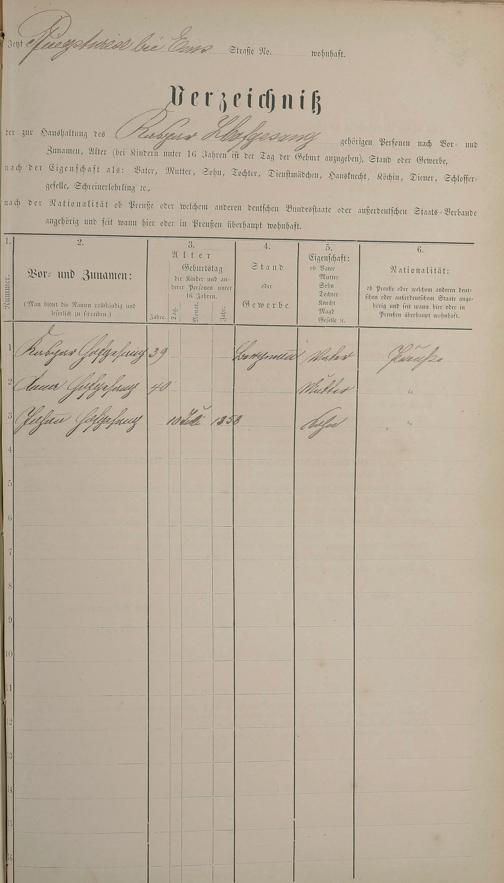 Jetzt Pfingstwiese bei Ems Straße No. wohnhaft.
Verzeichniß
der zur Haushaltung des Hofgesang gehörigen Personen nach Vor- und
Zunamen, Alter (bei Kindern unter 16 Jahren ist der Tag der Geburt anzugeben), Stand oder Gewerbe,
nach der Eigenschaft als: Vater, Mutter, Sohn, Tochter, Dienstmädchen, Hausknecht, Köchin, Diener, Schlosser-
geselle, Schreinerlehrling ꝛc.,
nach der Nationalität ob Preuße oder welchem anderen deutschen Bundesstaate oder außerdeutschen Staats-Verbande
angehörig und seit wann hier oder in Preußen überhaupt wohnhaft.
1. 2. 3. 4. 5. 6.
Nummer.
Vor- und Zunamen:
(Man bittet die Namen vollständig und
leserlich zu schreiben.)
Alter
Geburtstag
der Kinder und an-
derer Personen unter
16 Jahren.
Jahre. Tag. Monat. Jahr.
Stand
oder
Gewerbe.
Eigenschaft:
ob Vater
Mutter
Sohn
Tochter
Knecht
Magd
Geselle u.
Nationalität:
ob Preuße oder welchem anderen deut-
schen oder außerdeutschen Staate ange-
hörig und seit wann hier oder in
Preußen überhaupt wohnhaft.
1 Hofgesang 39 Bergmann Vater Preuße
2 Anna Hofgesang 40 Mutter "
3 Johan Hofgesang 10 1858 Sohn "
4
5
6
7
8
9
10
11